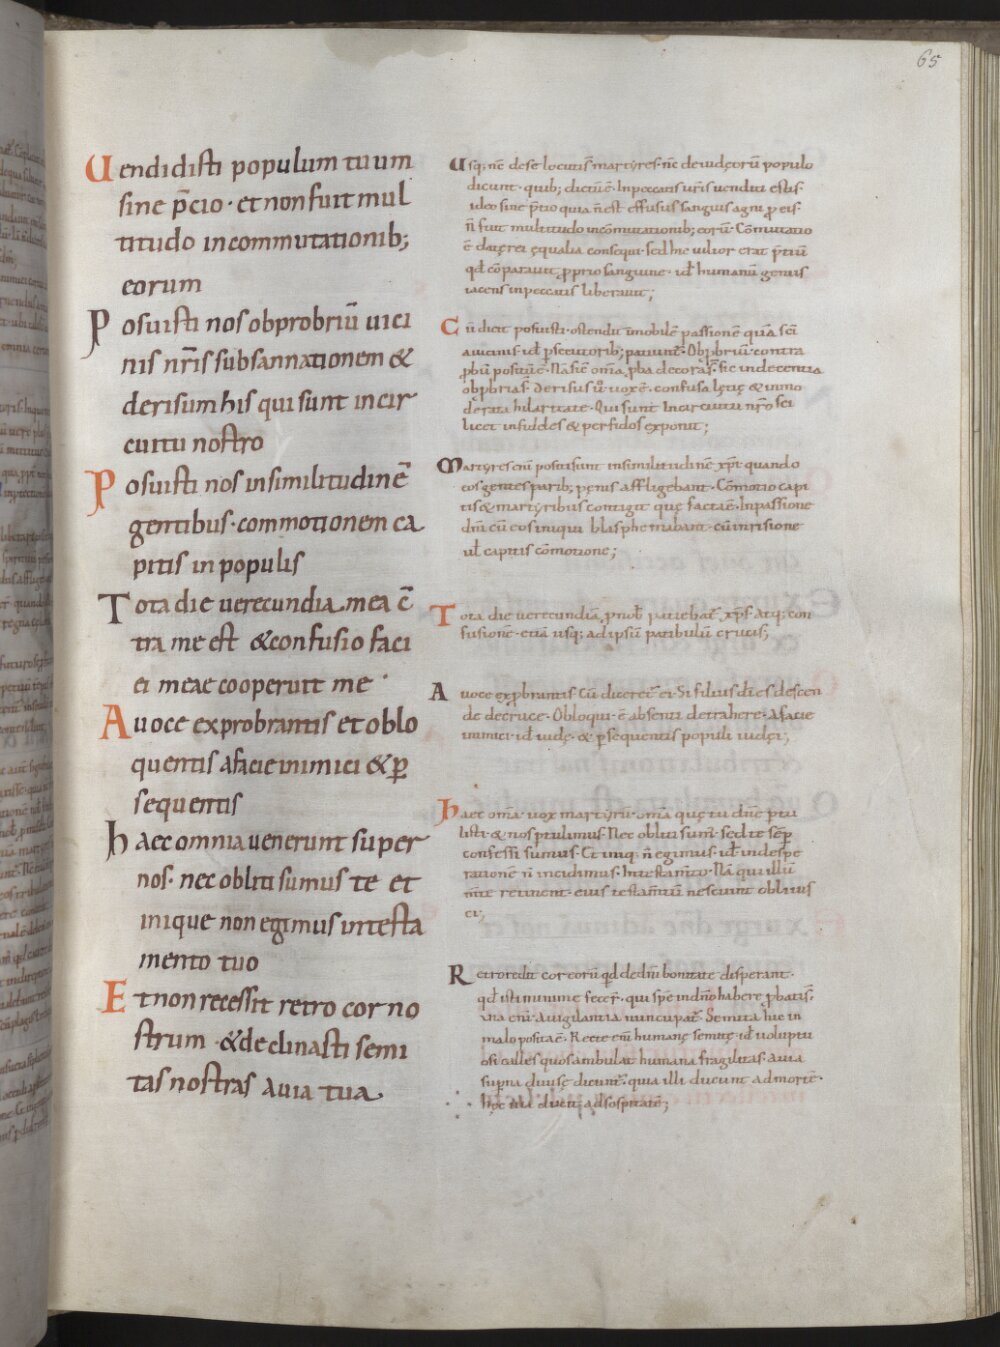 65
Uendidisti populum tuum
sine p̄cio · et non fuit mul
titudo in commutationib;
eorum
Posuisti nos obprobriū uici
nis nr̄is subsannationem &
derisum his qui sunt in cir
cuitu nostro
Posuisti nos in similitudinē
gentibus · commotionem ca
pitis in populis
Tota die uerecundia mea c̄
tra me est &confusio faci
ei meae cooperuit me ·
A uoce exprobrantis et oblo
quentis a facie inimici & p̲
sequentis
haec omnia uenerunt super
nos · nec obliti sumus te et
inique non egimus in testa
mento tuo
Et non recessit retro cor no
strum · &declinasti semi
tas nostras a uia tua.
Usq; nē de se locutis martyres · nc̄ de iudęorū populo
dicunt · quib; dictū ē · In peccatis uris uenditi estis
ideo sine p̄tio quia n̄ est effusus sanguis agni p̱ eis ·
n̄ fuit multitudo in cōmutationib; eorū · Cōmutatio
ē datę rei ęqualia consequi · sed hic uilior erat p̄tiū
qd̄ cōparauit p̱prio sanguine · id̄ humanū genus
iacens in peccatis liberauit;
Cū dicit posuisti · ostendit
a uicinis · id̄ p̱secutorib; patiunt̄ · Obp̱briū · contra
derisus u̇ uox ē · confusa lętię & inmo
derata hilaritate · Qui sunt in circuitu nr̄o sci
licet infideles & perfidos exponit;
Martyres eni positi sunt in similitudinē xp̄i quando
eos gentes parib; pęnis affligebant · Cōmotio capi
tis & martyribus contigit quę facta ē · In passione
dn̄i cū eos iniqui blasphemabant · cū inrisione
ul̄ capitis cōmotione;
Tota die uerecundiā p̱ nob̄ patiebat̄ xp̄s · atq; con
fusionē · etiā usq; ad ipsiū patibulū crucis;
A uoce exp̱brantis cū dicerēt ei · Si filius dī es descen
de de cruce · Obloqui · ē absenti detrahere · A facie
inimici · id̄ iudę · & p̱sequentis populi iudęi;
haec om̄a uox martyrū · om̄a quę tu dn̄e p̱tu
listi · & nos p̱tulimus · Nec obliti sum̄ · sed te sēp̱
confessi sumus · Et iniq; n̄ egimus · id̄ in despe
rationē n̄ incidimus · In testamto · Nā qui illū
m̄te retinent · eius testam̄tū nesciunt obliuis
ci;
Retro redit cor eorū qd̄ de dn̄i bonitate disperant ·
qd̄ isti minime fecer̄ · qui spē in dn̄o habere p̱batis ·
uia eni · a uigilantia nuncupat̄ · Semita hic in
malo posita ē · Recte eni humanę semitę · id̄ uoluptu
osi calles quos ambulat humana fragilitas · a uia
sup̱na diuisę dicunt̄ · quia illi ducunt ad mortē ·
hęc uia ducit ad sospitatē;